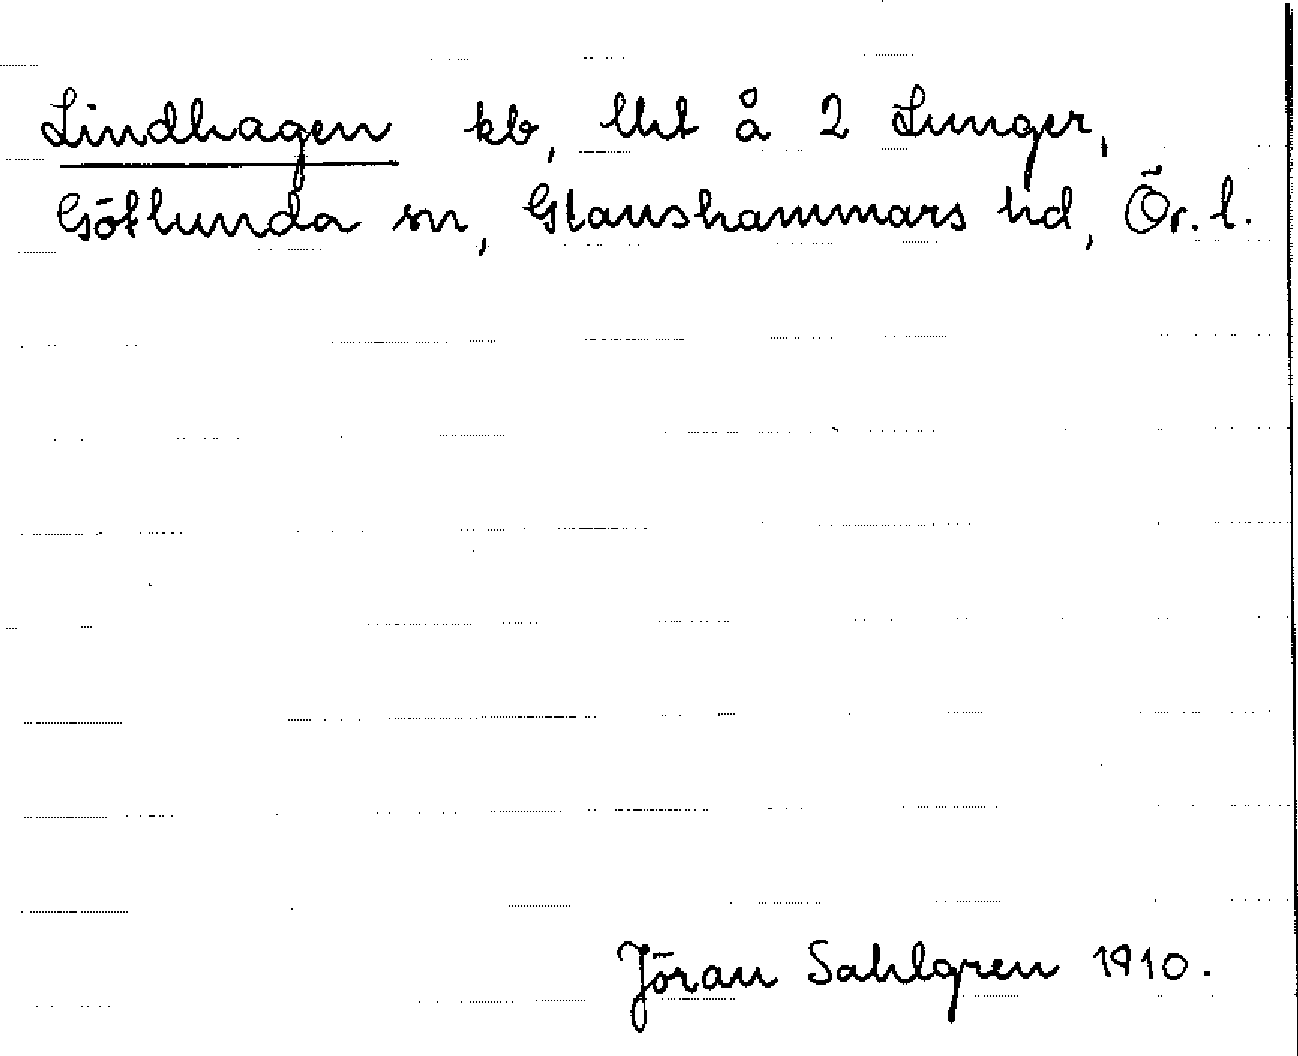 Lindhagen kb, lht å 2 Lunger,
Götlunda sn, Glanshammars hd, Ör. l.
Jöran Sahlgren 1910.